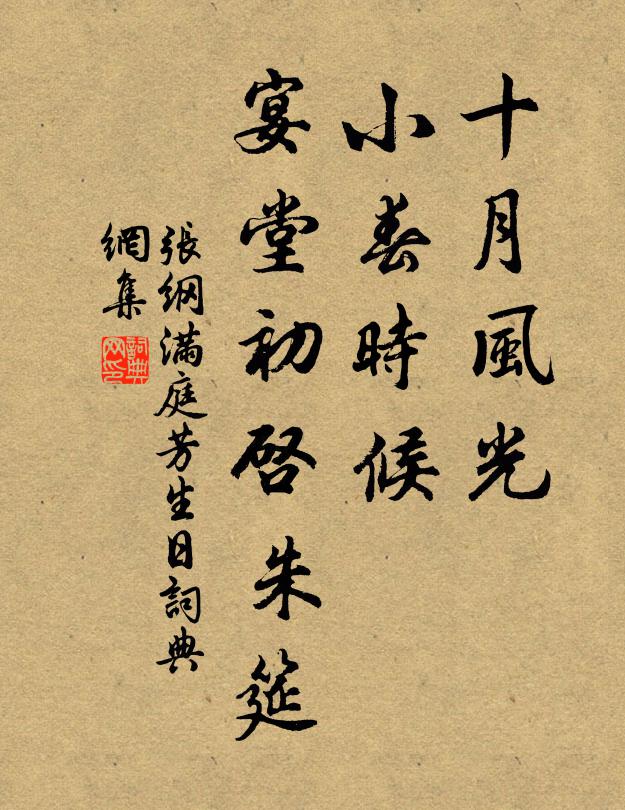 十月風光
小春時候
宴堂初啓朱筵
張綱滿庭芳生日詞典
網集
詞典
网印